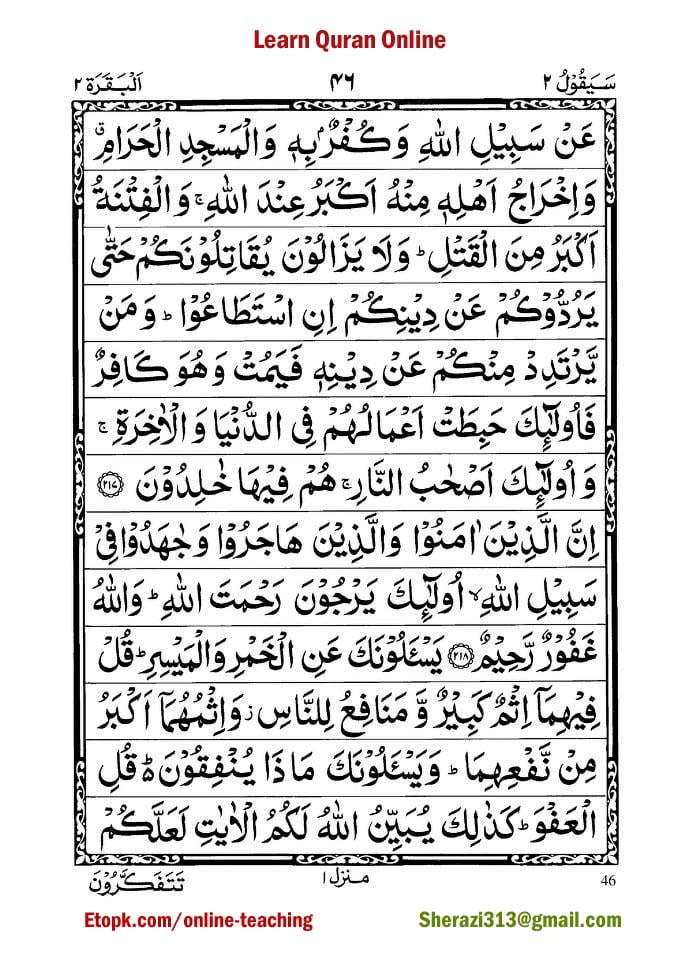 Learn Quran Online
سَيَقُوۡلُ ٢ ٤٦ اَلۡبَقَرَة ٢
عَنۡ سَبِيۡلِ اللّٰهِ وَ كُفۡرٌۢ بِهٖ وَالۡمَسۡجِدِ الۡحَـرَامِ ۙ
وَاِخۡرَاجُ اَهۡلِهٖ مِنۡهُ اَكۡبَرُ عِنۡدَ اللّٰهِ ۚ وَالۡفِتۡنَةُ
اَکۡبَرُ مِنَ الۡقَتۡلِ ؕ وَلَا يَزَالُوۡنَ يُقَاتِلُوۡنَكُمۡ حَتّٰى
يَرُدُّوۡكُمۡ عَنۡ دِيۡـنِکُمۡ اِنِ اسۡتَطَاعُوۡا ؕ وَ مَنۡ
يَّرۡتَدِدۡ مِنۡكُمۡ عَنۡ دِيۡـنِهٖ فَيَمُتۡ وَهُوَ كَافِرٌ
فَاُولٰٓٮِٕكَ حَبِطَتۡ اَعۡمَالُهُمۡ فِى الدُّنۡيَا وَالۡاٰخِرَةِ ۚ
وَ اُولٰٓٮِٕكَ اَصۡحٰبُ النَّارِ ۚ هُمۡ فِيۡهَا خٰلِدُوۡنَ ٢١٧
اِنَّ الَّذِيۡنَ اٰمَنُوۡا وَالَّذِيۡنَ هَاجَرُوۡا وَ جٰهَدُوۡا فِىۡ
سَبِيۡلِ اللّٰهِ ۙ اُولٰٓٮِٕكَ يَرۡجُوۡنَ رَحۡمَتَ اللّٰهِ ؕ وَاللّٰهُ
غَفُوۡرٌ رَّحِيۡمٌ ٢١٨ يَسۡـَٔـلُوۡنَكَ عَنِ الۡخَمۡرِ وَالۡمَيۡسِرِ ؕ قُلۡ
فِيۡهِمَآ اِثۡمٌ کَبِيۡرٌ وَّ مَنَافِعُ لِلنَّاسِ ز وَاِثۡمُهُمَآ اَکۡبَرُ
مِنۡ نَّفۡعِهِمَا ؕ وَيَسۡـَٔـلُوۡنَكَ مَاذَا يُنۡفِقُوۡنَ ؕ قُلِ
الۡعَفۡوَ ؕ كَذٰلِكَ يُبَيِّنُ اللّٰهُ لَـكُمُ الۡاٰيٰتِ لَعَلَّکُمۡ
46 منزل ١ تَتَفَكَّرُوۡنَ
Etopk.com/online-teaching Sherazi313@gmail.com